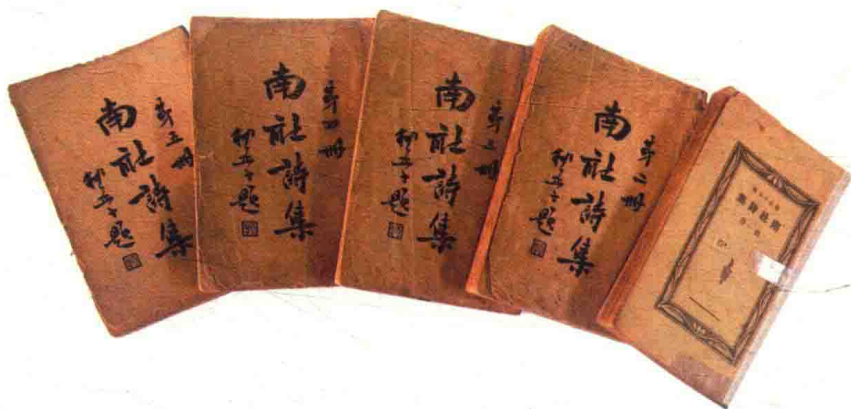 第五冊
南社詩集
柳亞子題
第四冊
南社詩集
柳亞子題
第三冊
南社詩集
柳亞子題
第二冊
南社詩集
柳亞子題
南社詩集